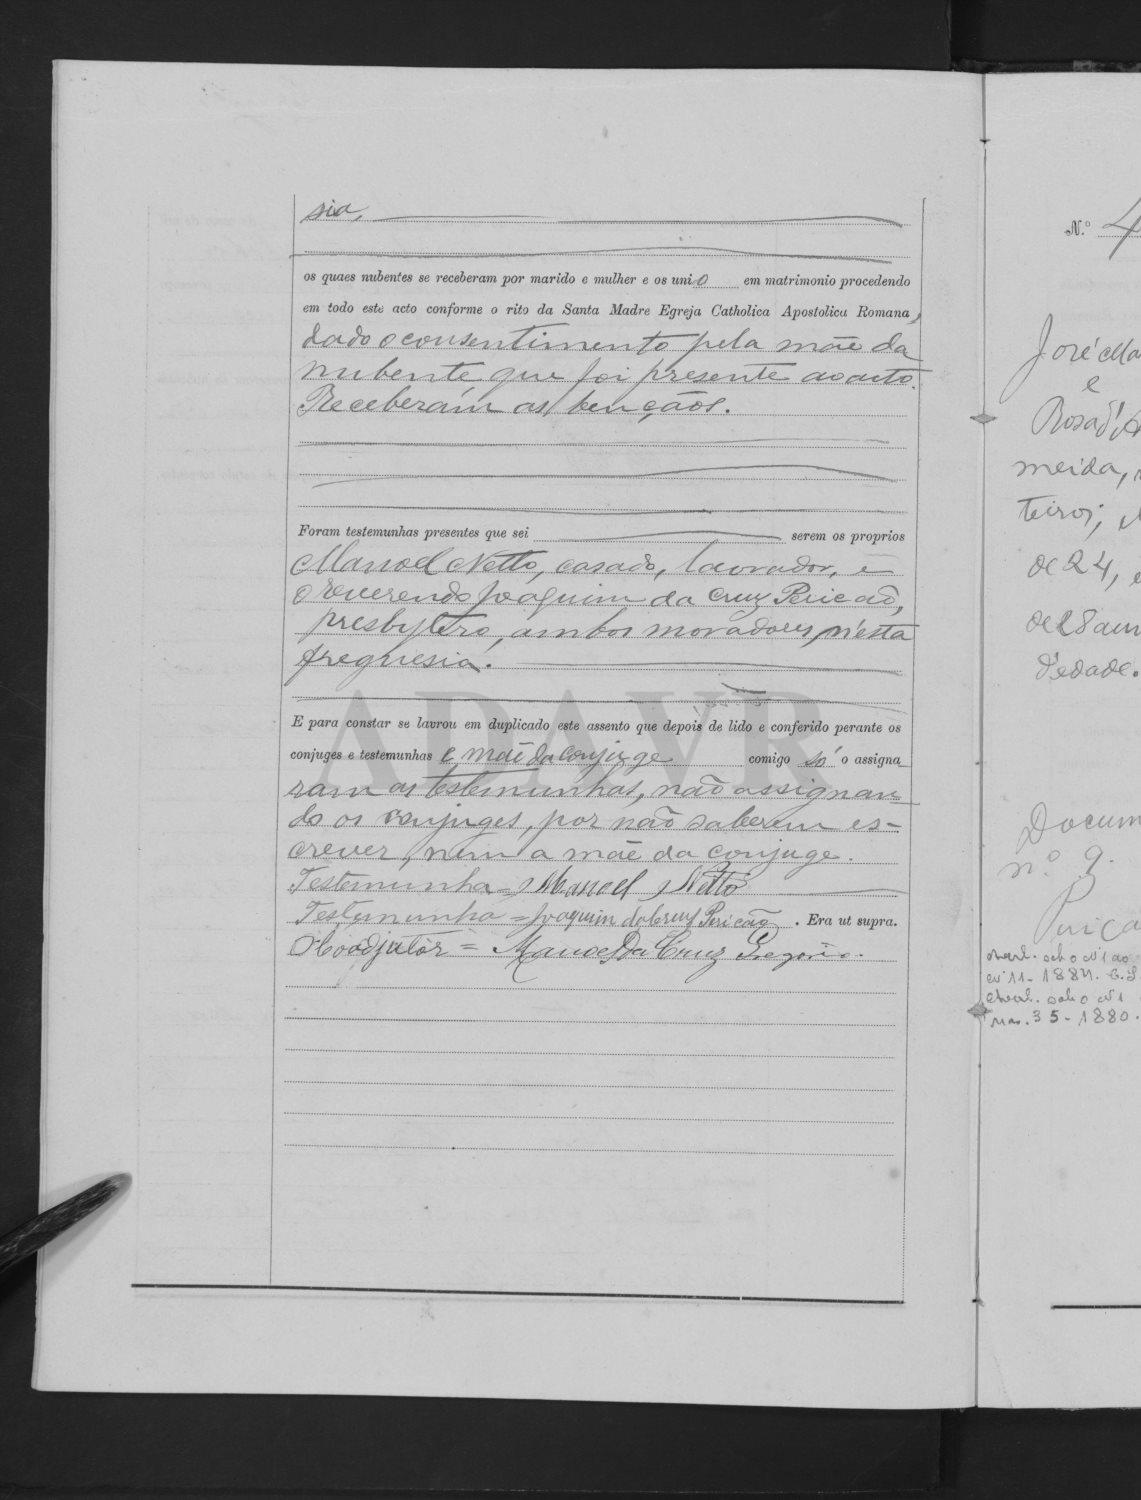 sia,
os quaes nubentes se receberam por marido e mulher e os uni o em matrimonio procedendo
em todo este acto conforme o rito da Santa Madre Egreja Catholica Apostolica Romana,
dado o consentimento pela mãe da
nubente que foi presente ao acto.
Receberam as bençãos.
Foram testemunhas presentes que sei serem os proprios
Manoel Netto, casado, lavrador, e
o reverendo Joaquim da Cruz Pericaõ,
presbytero, ambos moradores n'esta
freguesia.
E para constar se lavrou em duplicado este assento que depois de lido e conferido perante os
conjuges e testemunhas e mãe da conjuge comigo só o assigna
ram as testemunhas, não assignan-
do os conjuges, por não saberem es-
crever, nem a mãe da conjuge.
Testemunha = Manoel Netto
Testemunha = Joaquim da Cruz Pericão . Era ut supra.
O Coadjutor = Manoel da Cruz Gregorio.
ADAVR
N.º 4
José Ma
e
Rosa d'
meida,
teiros,
de 24, e
de 18 ann
d'edade.
Docum
n.º 9.
Perica
1884.
35-1880.